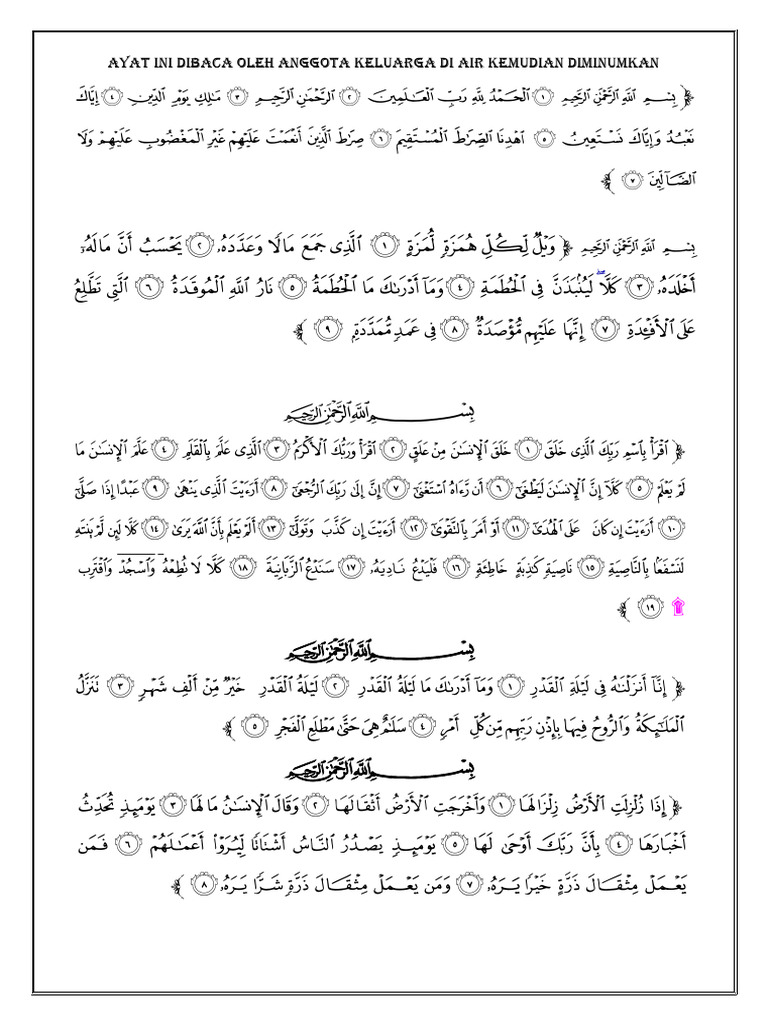 AYAT INI DIBACA OLEH ANGGOTA KELUARGA DI AIR KEMUDIAN DIMINUMKAN
﴿ بِسْمِ ٱللَّهِ ٱلرَّحْمَٰنِ ٱلرَّحِيمِ ١ ٱلْحَمْدُ لِلَّهِ رَبِّ ٱلْعَٰلَمِينَ ٢ ٱلرَّحْمَٰنِ ٱلرَّحِيمِ ٣ مَٰلِكِ يَوْمِ ٱلدِّينِ ٤ إِيَّاكَ
نَعْبُدُ وَإِيَّاكَ نَسْتَعِينُ ٥ ٱهْدِنَا ٱلصِّرَٰطَ ٱلْمُسْتَقِيمَ ٦ صِرَٰطَ ٱلَّذِينَ أَنْعَمْتَ عَلَيْهِمْ غَيْرِ ٱلْمَغْضُوبِ عَلَيْهِمْ وَلَا
ٱلضَّآلِّينَ ٧ ﴾
بِسْمِ ٱللَّهِ ٱلرَّحْمَٰنِ ٱلرَّحِيمِ ﴿ وَيْلٌ لِّكُلِّ هُمَزَةٍ لُّمَزَةٍ ١ ٱلَّذِى جَمَعَ مَالًا وَعَدَّدَهُۥ ٢ يَحْسَبُ أَنَّ مَالَهُۥٓ
أَخْلَدَهُۥ ٣ كَلَّا ۖ لَيُنۢبَذَنَّ فِى ٱلْحُطَمَةِ ٤ وَمَآ أَدْرَىٰكَ مَا ٱلْحُطَمَةُ ٥ نَارُ ٱللَّهِ ٱلْمُوقَدَةُ ٦ ٱلَّتِى تَطَّلِعُ
عَلَى ٱلْأَفْـِٔدَةِ ٧ إِنَّهَا عَلَيْهِم مُّؤْصَدَةٌ ٨ فِى عَمَدٍ مُّمَدَّدَةٍۭ ٩ ﴾
بِسْمِ ٱللَّهِ ٱلرَّحْمَٰنِ ٱلرَّحِيمِ
﴿ ٱقْرَأْ بِٱسْمِ رَبِّكَ ٱلَّذِى خَلَقَ ١ خَلَقَ ٱلْإِنسَٰنَ مِنْ عَلَقٍ ٢ ٱقْرَأْ وَرَبُّكَ ٱلْأَكْرَمُ ٣ ٱلَّذِى عَلَّمَ بِٱلْقَلَمِ ٤ عَلَّمَ ٱلْإِنسَٰنَ مَا
لَمْ يَعْلَمْ ٥ كَلَّآ إِنَّ ٱلْإِنسَٰنَ لَيَطْغَىٰٓ ٦ أَن رَّءَاهُ ٱسْتَغْنَىٰٓ ٧ إِنَّ إِلَىٰ رَبِّكَ ٱلرُّجْعَىٰٓ ٨ أَرَءَيْتَ ٱلَّذِى يَنْهَىٰ ٩ عَبْدًا إِذَا صَلَّىٰٓ
١٠ أَرَءَيْتَ إِن كَانَ عَلَى ٱلْهُدَىٰٓ ١١ أَوْ أَمَرَ بِٱلتَّقْوَىٰٓ ١٢ أَرَءَيْتَ إِن كَذَّبَ وَتَوَلَّىٰٓ ١٣ أَلَمْ يَعْلَم بِأَنَّ ٱللَّهَ يَرَىٰ ١٤ كَلَّا لَئِن لَّمْ يَنتَهِ
لَنَسْفَعًۢا بِٱلنَّاصِيَةِ ١٥ نَاصِيَةٍ كَٰذِبَةٍ خَاطِئَةٍ ١٦ فَلْيَدْعُ نَادِيَهُۥ ١٧ سَنَدْعُ ٱلزَّبَانِيَةَ ١٨ كَلَّا لَا تُطِعْهُ وَٱسْجُدْ وَٱقْتَرِب
۩ ١٩ ﴾
بِسْمِ ٱللَّهِ ٱلرَّحْمَٰنِ ٱلرَّحِيمِ
﴿ إِنَّآ أَنزَلْنَٰهُ فِى لَيْلَةِ ٱلْقَدْرِ ١ وَمَآ أَدْرَىٰكَ مَا لَيْلَةُ ٱلْقَدْرِ ٢ لَيْلَةُ ٱلْقَدْرِ خَيْرٌ مِّنْ أَلْفِ شَهْرٍ ٣ تَنَزَّلُ
ٱلْمَلَٰٓئِكَةُ وَٱلرُّوحُ فِيهَا بِإِذْنِ رَبِّهِم مِّن كُلِّ أَمْرٍ ٤ سَلَٰمٌ هِىَ حَتَّىٰ مَطْلَعِ ٱلْفَجْرِ ٥ ﴾
بِسْمِ ٱللَّهِ ٱلرَّحْمَٰنِ ٱلرَّحِيمِ
﴿ إِذَا زُلْزِلَتِ ٱلْأَرْضُ زِلْزَالَهَا ١ وَأَخْرَجَتِ ٱلْأَرْضُ أَثْقَالَهَا ٢ وَقَالَ ٱلْإِنسَٰنُ مَا لَهَا ٣ يَوْمَئِذٍ تُحَدِّثُ
أَخْبَارَهَا ٤ بِأَنَّ رَبَّكَ أَوْحَىٰ لَهَا ٥ يَوْمَئِذٍ يَصْدُرُ ٱلنَّاسُ أَشْتَاتًا لِّيُرَوْا۟ أَعْمَٰلَهُمْ ٦ فَمَن
يَعْمَلْ مِثْقَالَ ذَرَّةٍ خَيْرًا يَرَهُۥ ٧ وَمَن يَعْمَلْ مِثْقَالَ ذَرَّةٍ شَرًّا يَرَهُۥ ٨ ﴾